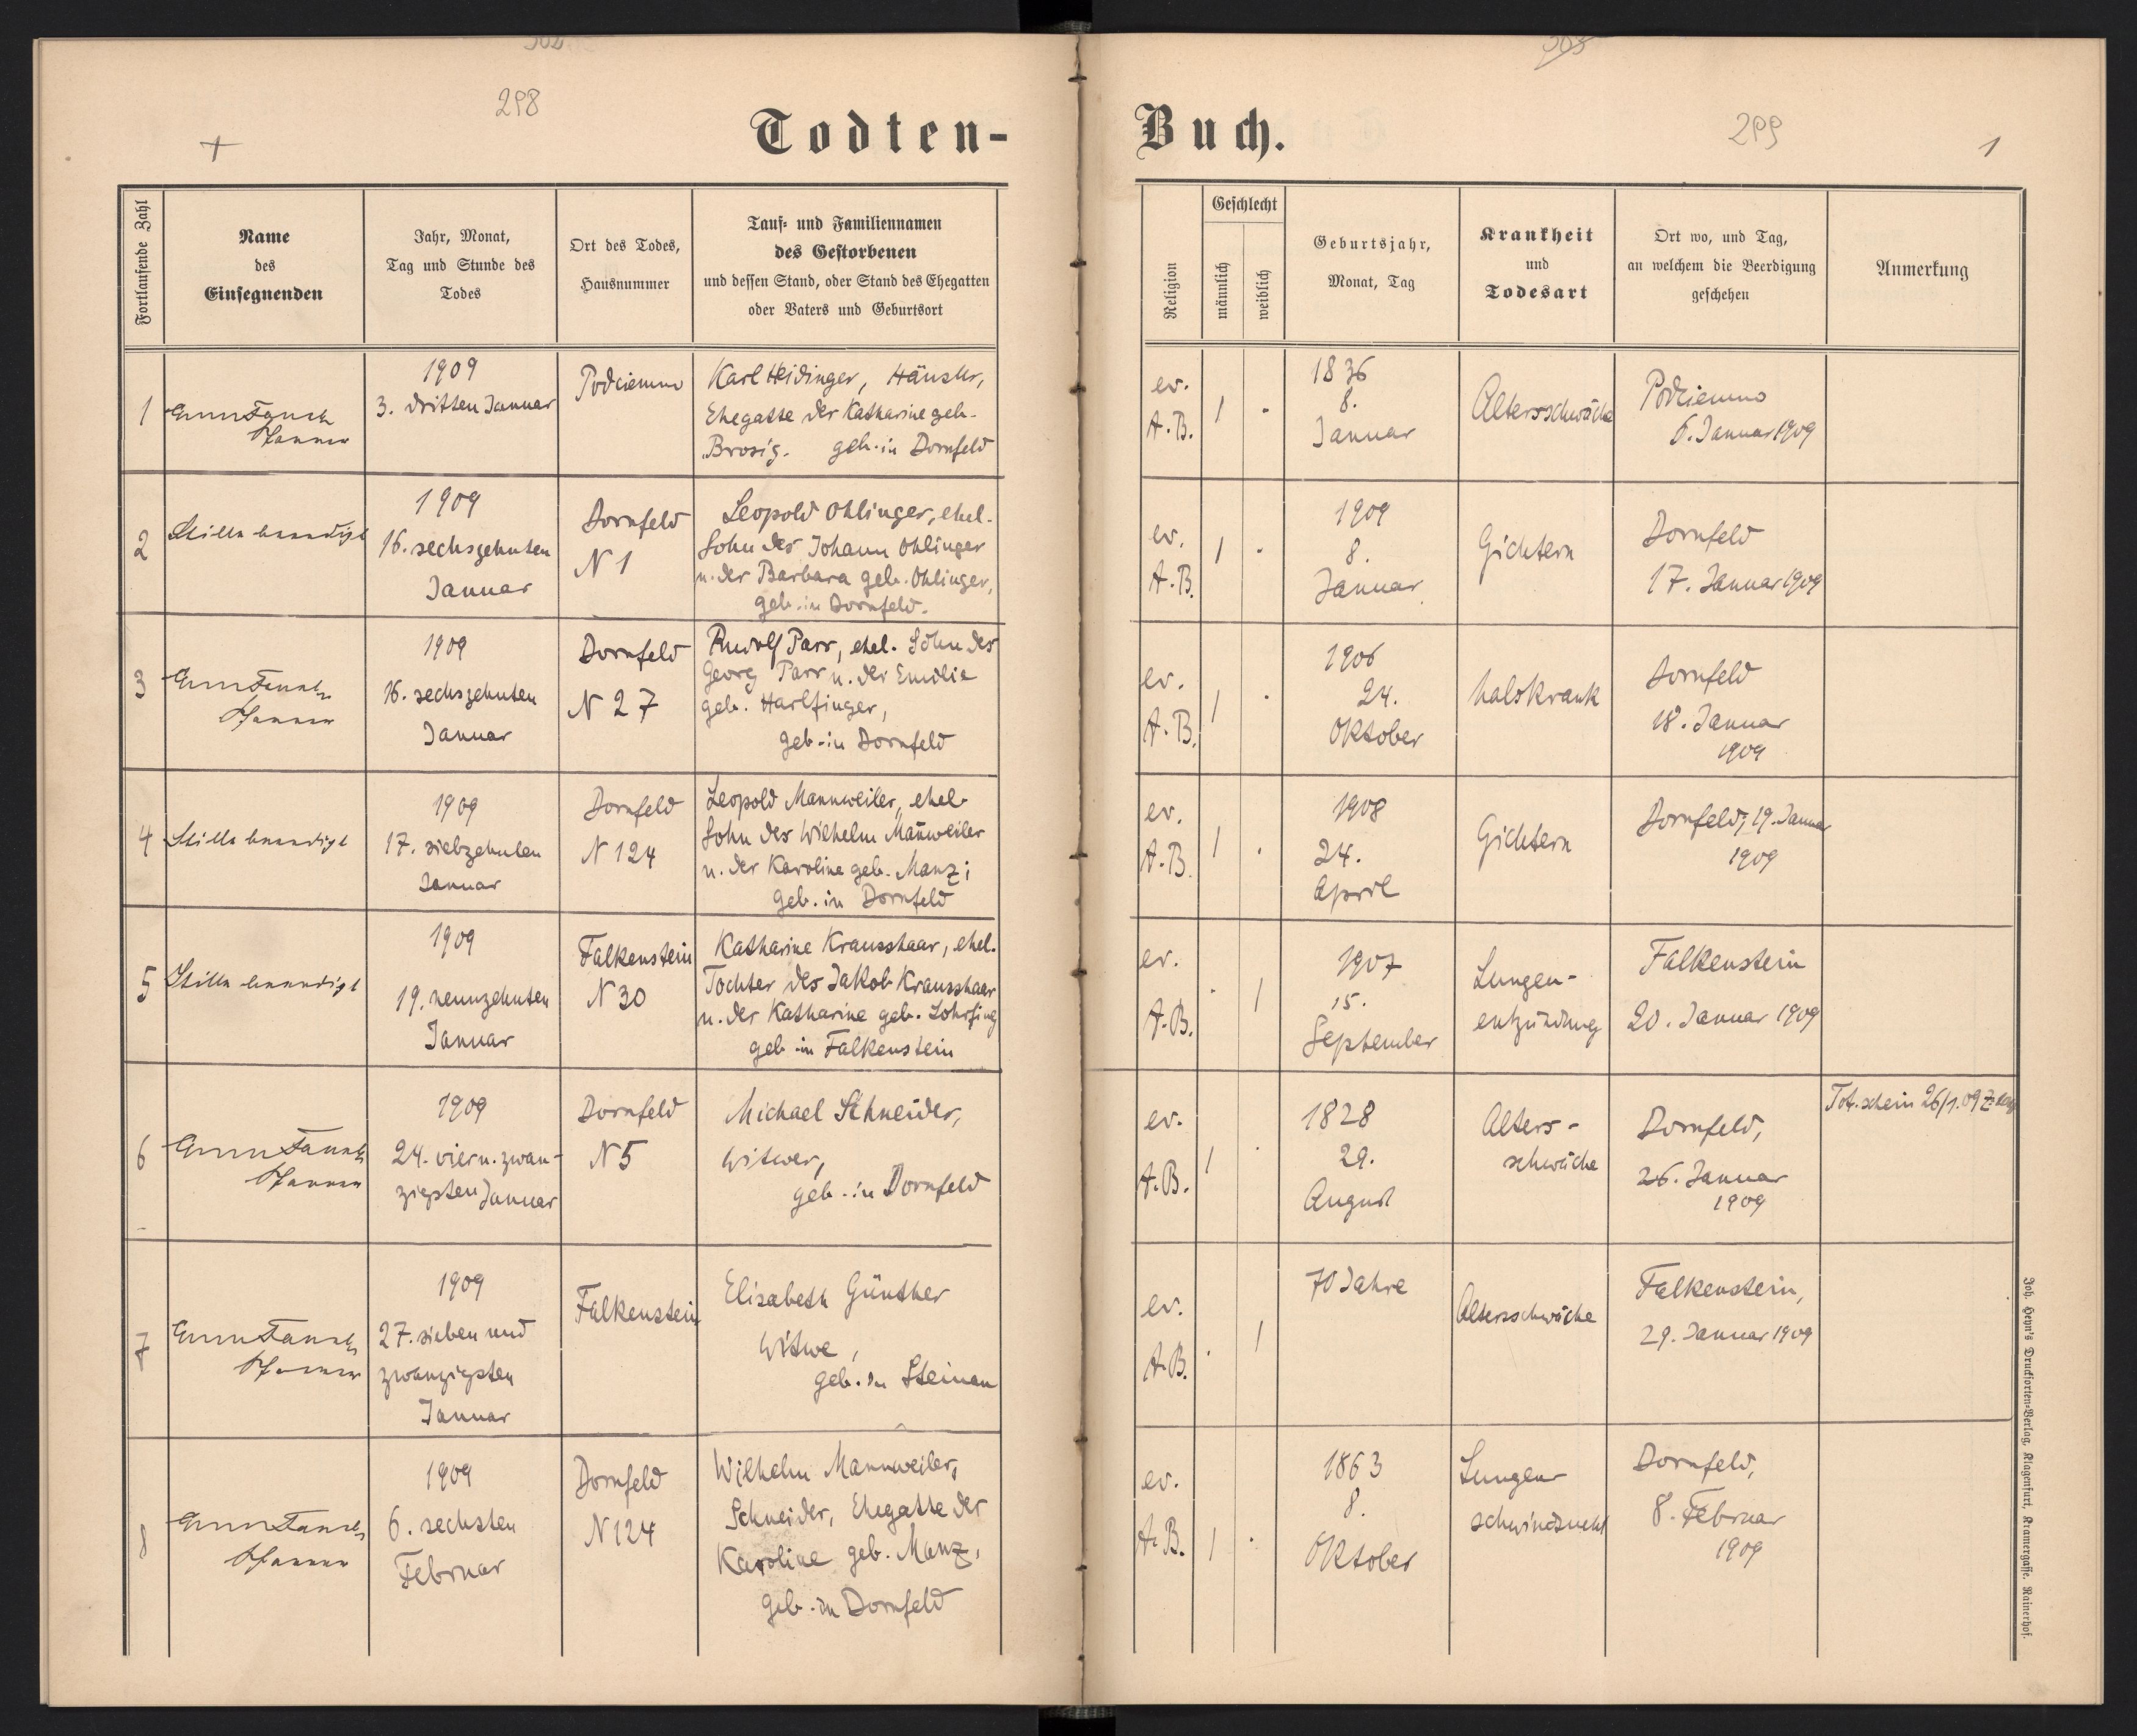 298
Todten-
Buch.
299
1
Fortlaufende Zahl
Name
des
Einsegnenden
Jahr, Monat,
Tag und Stunde des
Todes
Ort des Todes,
Hausnummer
Tauf- und Familiennamen
des Gestorbenen
und dessen Stand, oder Stand des Ehegatten
oder Vaters und Geburtsort
Religion
Geschlecht
männlich
weiblich
Geburtsjahr,
Monat, Tag
Krankheit
und
Todesart
Ort wo, und Tag,
an welchem die Beerdigung
geschehen
Anmerkung
1
Pfarrer
1909
3. dritten Januar
Podciemno
Karl Heidinger, Häusler,
Ehegatte der Katharine geb.
Brosig. geb. in Dornfeld
ev.
A.B.
1836
8.
Januar
Altersschwäche
Podciemno
6. Januar 1909
2
Stille beerdigt
1909
16. sechszehnten
Januar
Dornfeld
N 1
Leopold Ohlinger, ehel.
Sohn des Johann Ohlinger
u. der Barbara geb. Ohlinger,
geb. in Dornfeld.
ev.
A.B.
1909
8.
Januar
Gichtern
Dornfeld
17. Januar 1909
3
Pfarrer
1909
16. sechszehnten
Januar
Dornfeld
N 27
Rudolf Parr, ehel. Sohn des
Georg Parr u. der Emilie
geb. Harlfinger,
geb. in Dornfeld
ev.
A.B.
1906
24.
Oktober
halskrank
Dornfeld
18. Januar
1909
4
Stille beerdigt
1909
17. siebzehnten
Januar
Dornfeld
N 124
Leopold Mannweiler, ehel.
Sohn des Wilhelm Man̄weiler
u. der Karoline geb. Manz;
geb. in Dornfeld
ev.
A.B.
1908
24.
April
Gichtern
Dornfeld, 19. Januar
1909
5
Stille beerdigt
1909
19. neunzehnten
Januar
Falkenstein
N 30
Katharine Krausshaar, ehel.
Tochter des Jakob Krausshaar
u. der Katharine geb. Lohrfing
geb. in Falkenstein
ev.
A.B.
1907
15.
September
Lungen-
entzündung
Falkenstein
20. Januar 1909
6
Pfarrer
1909
24. vieru. zwan-
zigsten Januar
Dornfeld
N 5
Michael Schneider,
Witwer,
geb. in Dornfeld
ev.
A.B.
1828
29.
August
Alters-
schwäche
Dornfeld,
26. Januar
1909
Tot.schein 26/1.09
7
Pfarrer
1909
27. sieben und
zwanzigsten
Januar
Falkenstein
Elisabeth Günther
Witwe,
geb. in Steinau
ev.
A.B.
70 Jahre
Altersschwäche
Falkenstein,
29. Januar 1909
8
Pfarrer
1909
6. sechsten
Februar
Dornfeld
N 124
Wilhelm Mannweiler,
Schneider, Ehegatte der
Karoline geb. Manz,
geb. in Dornfeld
ev.
A.B.
1863
8.
Oktober
Lungen
schwindsucht
Dornfeld,
8. Februar
1909
Joh. Heyn's Drucksorten-Verlag, Klagenfurt, Kramergasse, Rainerhof.